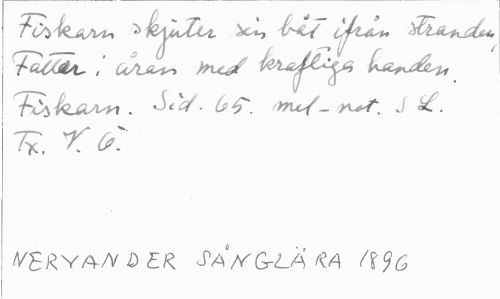 Fiskarn skjuter sin båt ifrån stranden,
Fattar i åran med kraftiga handen.
Fiskarn. Sid. 65. mel-not. S L.
Tx. V. G.
NERVANDER SÅNGLÄRA 1896